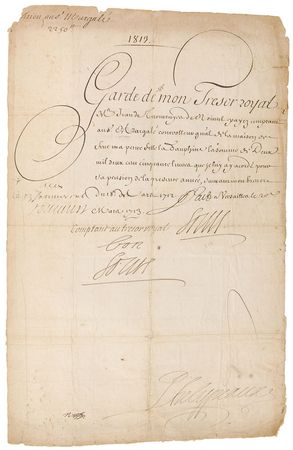 2250
1819
Garde de mon Tresor royal
Mr Jean de Turmenyes de Nointel payez comptant
au Sr Margalé controlleur gnal de la maison de
feue ma petite fille la Dauphine la somme de Deux
mil deux cens cinquante livres que je luy ay accordé pour
sa pension de la presente année,
du 18e de Mars 1712 Fait a Versailles le
Mars 1713
Louis
Comptant au tresor royal
Bon
Louis
Phelypeaux